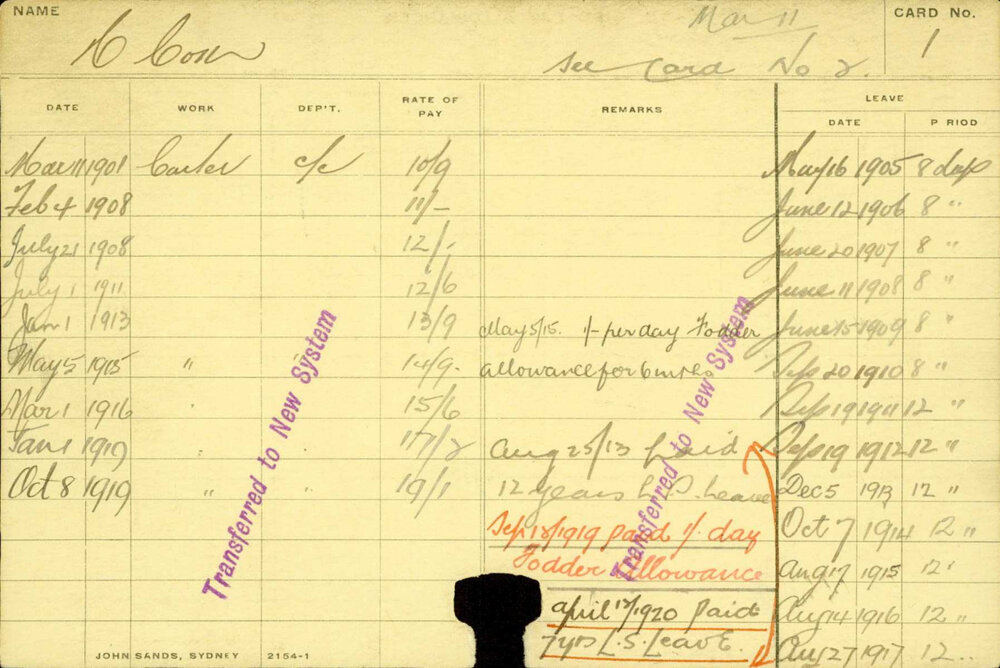 NAME
Mar 11
CARD No.
1
See Card No 2.
DATE WORK DEP'T. RATE OF PAY REMARKS LEAVE
DATE P RIOD
Mar 11 1901 Carter c/c 10/9 May 16 1905 8 days
Feb 4 1908 11/- June 12 1906 8 "
July 21 1908 12/- June 20 1907 8 "
July 1 1911 12/6 June 11 1908 8 "
Jan 1 1913 13/9 May 5/15. 1/- per day Fodder June 15 1909 8 "
May 5 1915 " 14/9 allowance for 6 mths Sep 20 1910 8 "
Mar 1 1916 15/6 Sep 19 1911 12 "
Jan 1 1919 17/2 Aug 25/13 paid Sep 19 1912 12 "
Oct 8 1919 " " 19/1 12 years L.S. Leave Dec 5 1913 12 "
Sep 18/1919 paid 1/- day Oct 7 1914 12 "
Fodder Allowance Aug 17 1915 12 "
April 1920 Paid Aug 14 1916 12 "
7 yrs L.S. Leave. Aug 27 1917 12 "
Transferred to New System
Transferred to New System
JOHN SANDS, SYDNEY 2154-1